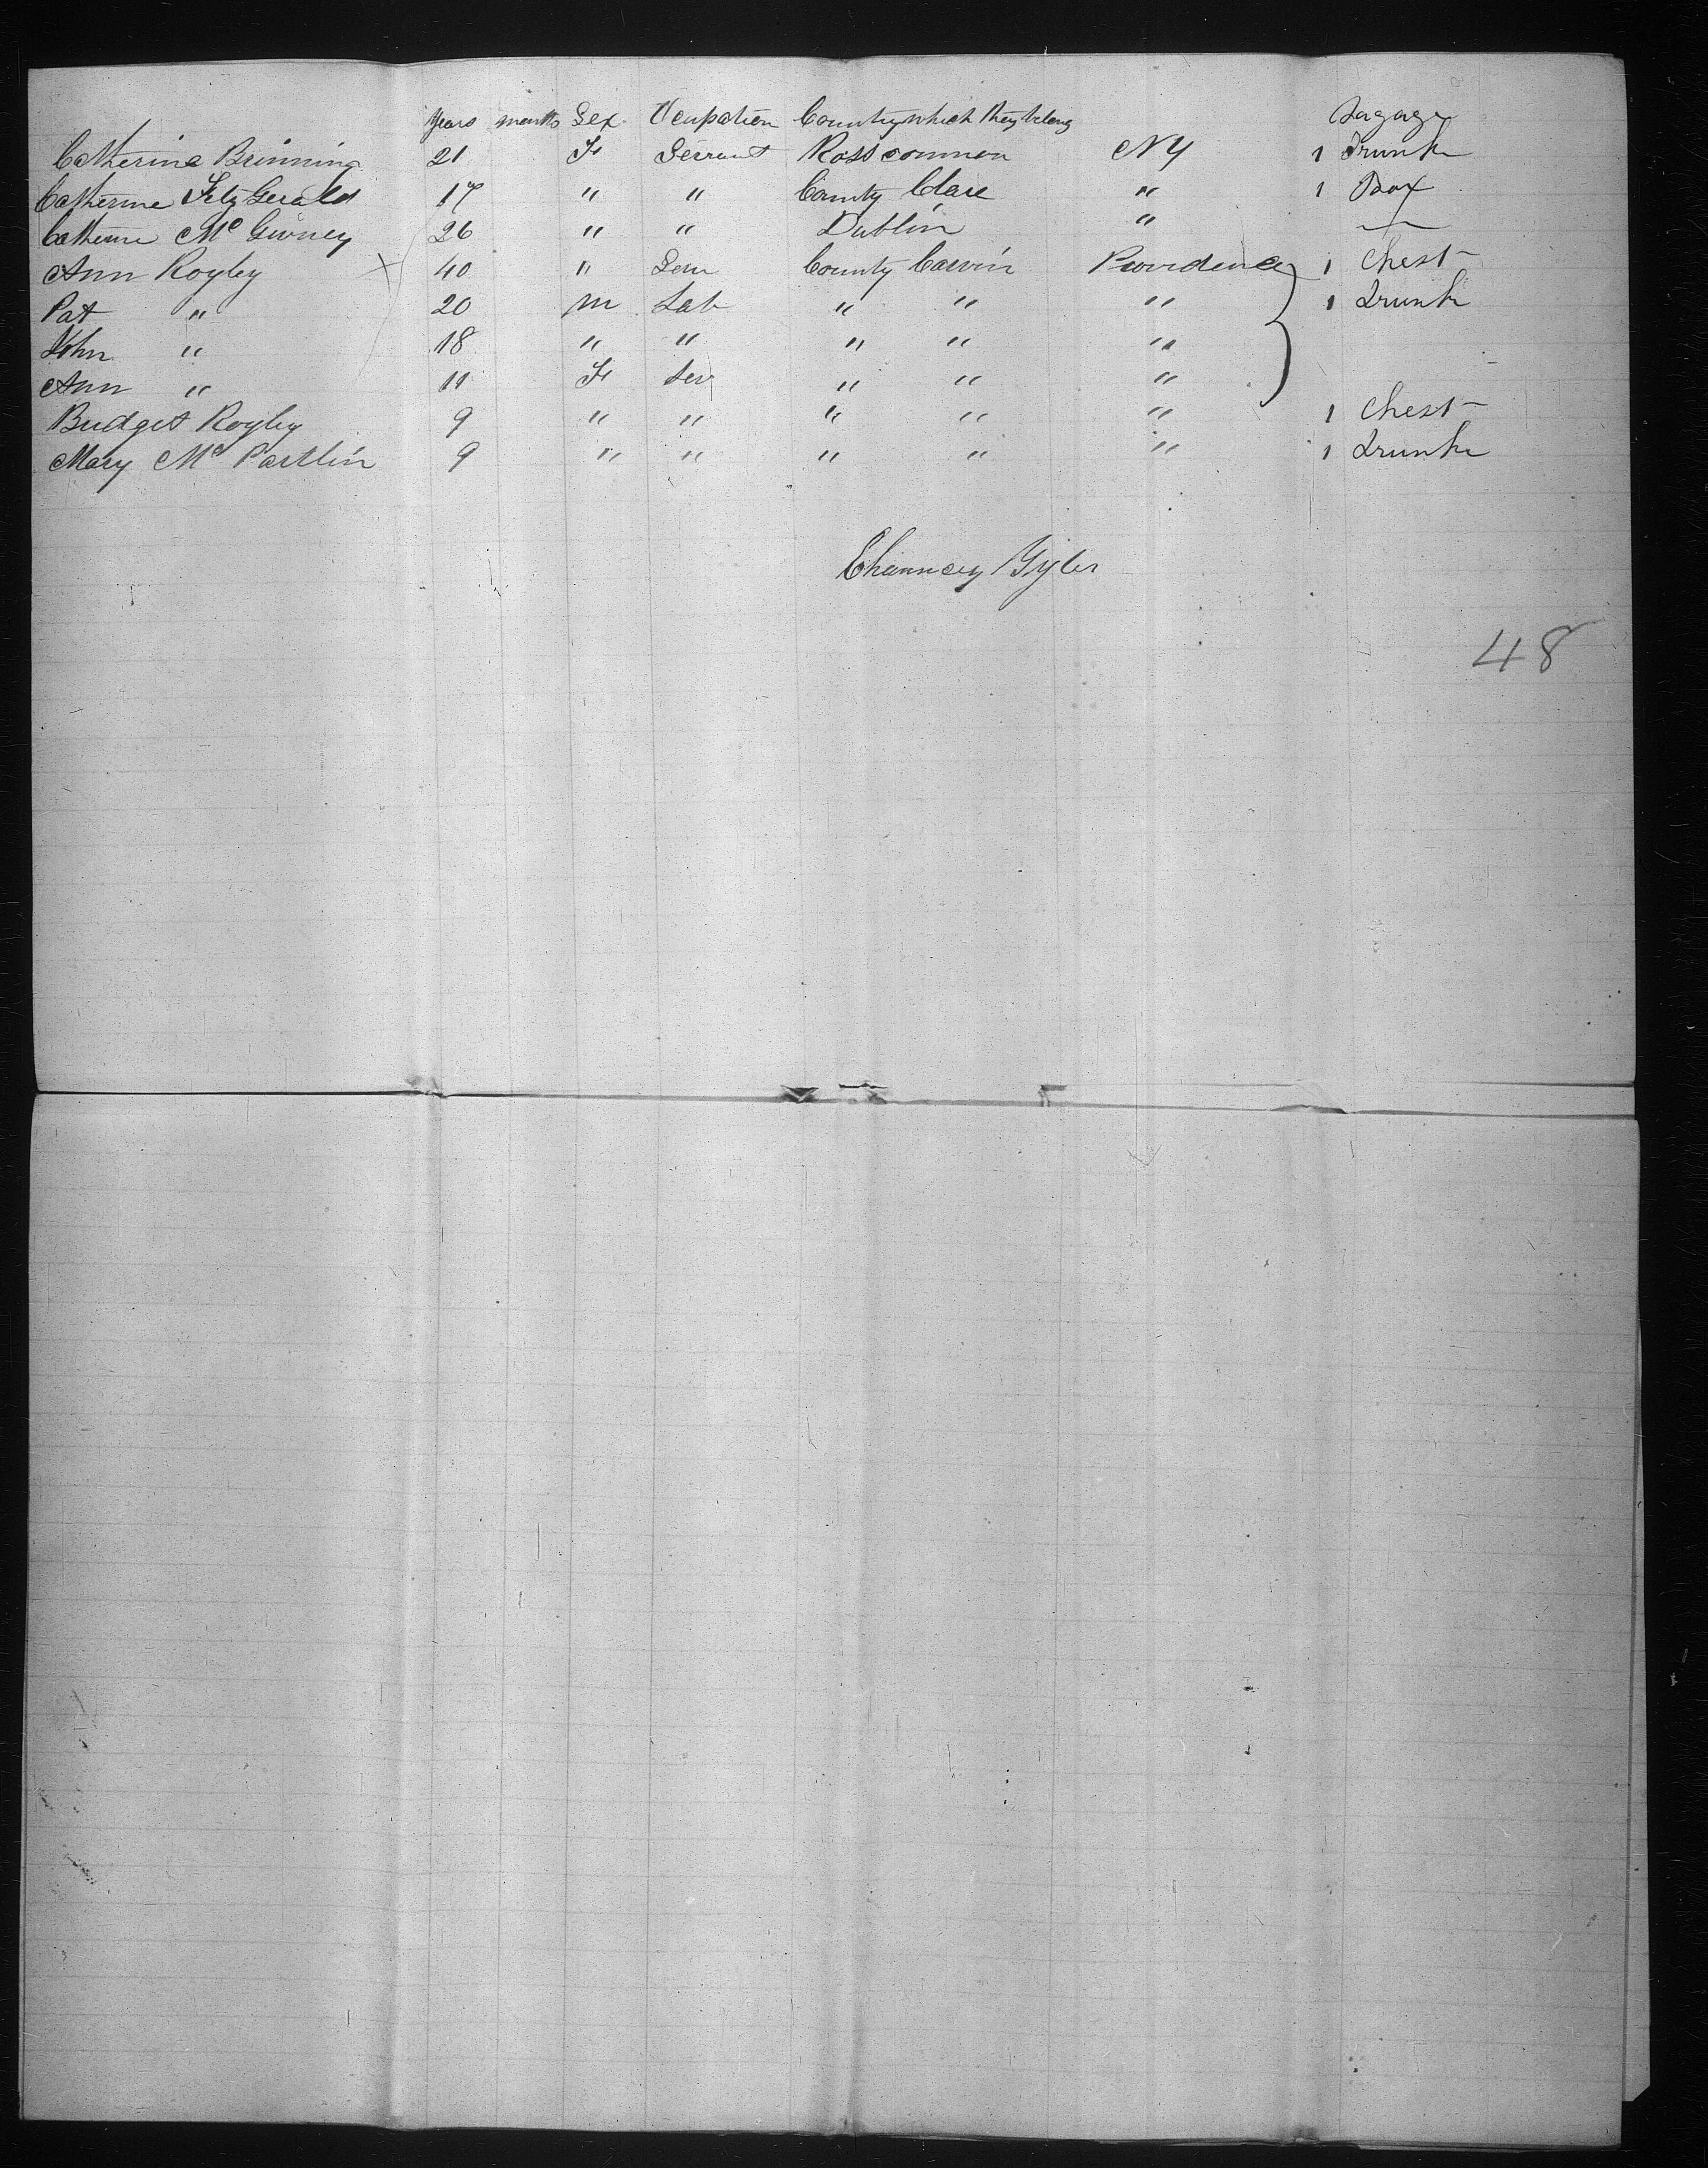 Years months Sex Ocupation Country which they belong Bagage
Catherine Brinning 21 F Servant Rosscommon NY 1 Trunk
Catherine FitzGerald 17 " " County Clare " 1 Box
Catherine Mc Givney 26 " " Dublin " —
Ann Rogley 40 " Serv County Carvin Providence 1 Chest
Pat " 20 m Lab " " " 1 Trunk
John " 18 " " " " "
Ann " 11 F Ser " " "
Bridget Rogley 9 " " " " " 1 Chest
Mary Mc Partlin 9 " " " " " 1 Trunk
Chauncey
48